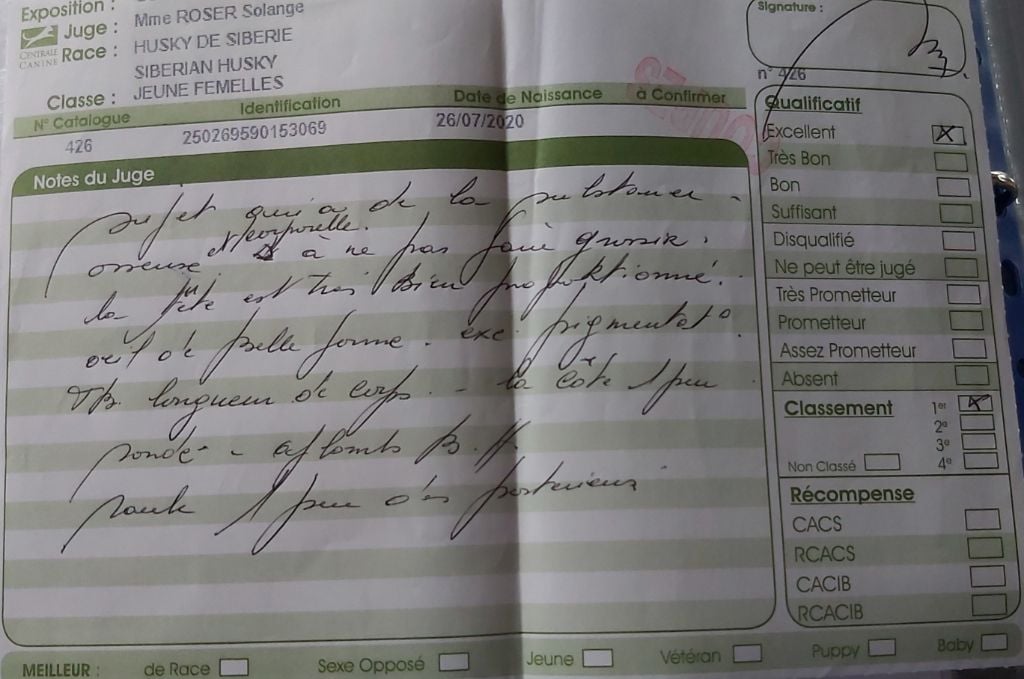 Exposition :
Juge : Mme ROSER Solange
CENTRALE CANINE
Race : HUSKY DE SIBERIE
SIBERIAN HUSKY
Classe : JEUNE FEMELLES
Signature :
N° Catalogue Identification Date de Naissance à Confirmer
426 250269590153069 26/07/2020
n° 426
Notes du Juge
sujet qui a de la substance -
osseuse et corporelle. à ne pas faire grossir.
la tête est très bien proportionné.
oeil de belle forme. exc pigmentat°
TB. longueur de corps. - la côte 1 peu
ronde - aplombs B.
1 peu des postérieurs
Qualificatif
Excellent X
Très Bon
Bon
Suffisant
Disqualifié
Ne peut être jugé
Très Prometteur
Prometteur
Assez Prometteur
Absent
Classement 1er X
2e
3e
Non Classé 4e
Récompense
CACS
RCACS
CACIB
RCACIB
MEILLEUR : de Race Sexe Opposé Jeune Vétéran Puppy Baby